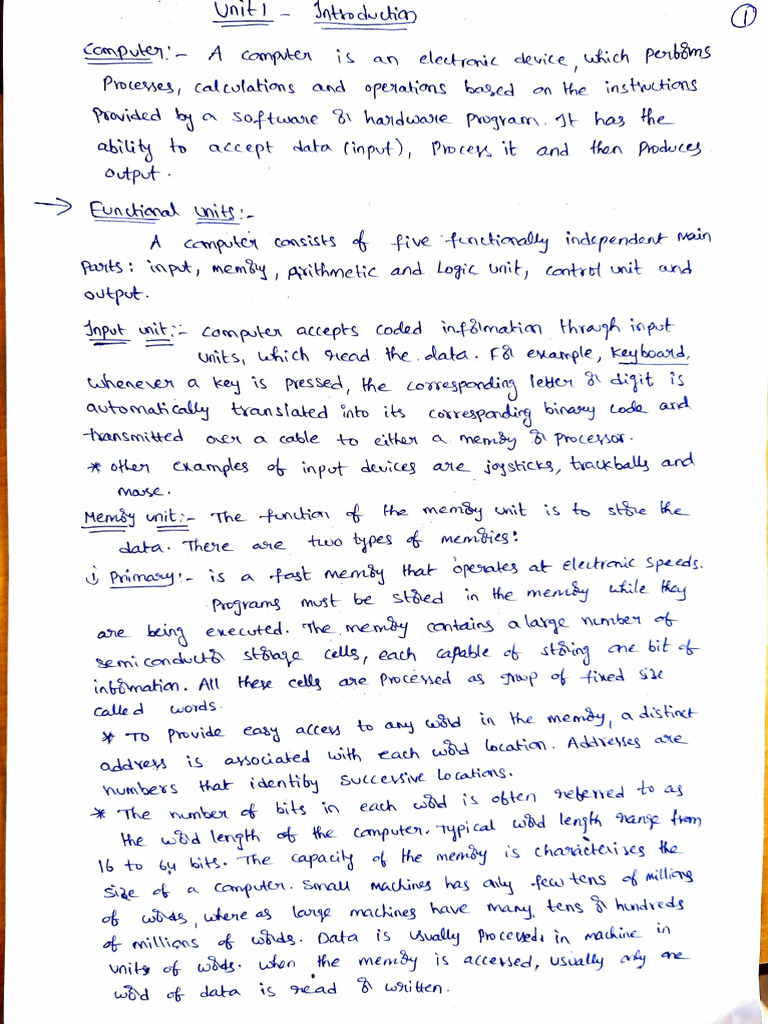 Unit 1 - Introduction
1
Computer:- A computer is an electronic device, which performs
Processes, calculations and operations based on the instructions
Provided by a software or hardware program. It has the
ability to accept data (input), Process it and then Produces
output.
→ Functional units:-
A computer consists of five functionally independent Main
Parts: input, memory, Arithmetic and Logic unit, control unit and
output.
Input unit:- computer accepts coded information through input
units, which read the data. For example, Keyboard,
whenever a key is pressed, the corresponding letter or digit is
automatically translated into its corresponding binary code and
transmitted over a cable to either a memory or Processor.
* other examples of input devices are joysticks, trackballs and
mouse.
Memory unit:- The function of the memory unit is to store the
data. There are two types of memories:
i) Primary:- is a fast memory that operates at electronic speeds.
Programs must be stored in the memory while they
are being executed. The memory contains a large number of
semiconductor storage cells, each capable of storing one bit of
information. All these cells are Processed as group of fixed size
called words.
* To Provide easy access to any word in the memory, a distinct
address is associated with each word location. Addresses are
numbers that identify successive locations.
* The number of bits in each word is often referred to as
the word length of the computer. Typical word length range from
16 to 64 bits. The capacity of the memory is characterises the
size of a computer. Small machines has only few tens of millions
of words, where as large machines have many tens or hundreds
of millions of words. Data is usually Processed in machine in
units of words. when the memory is accessed, usually only one
word of data is read or written.